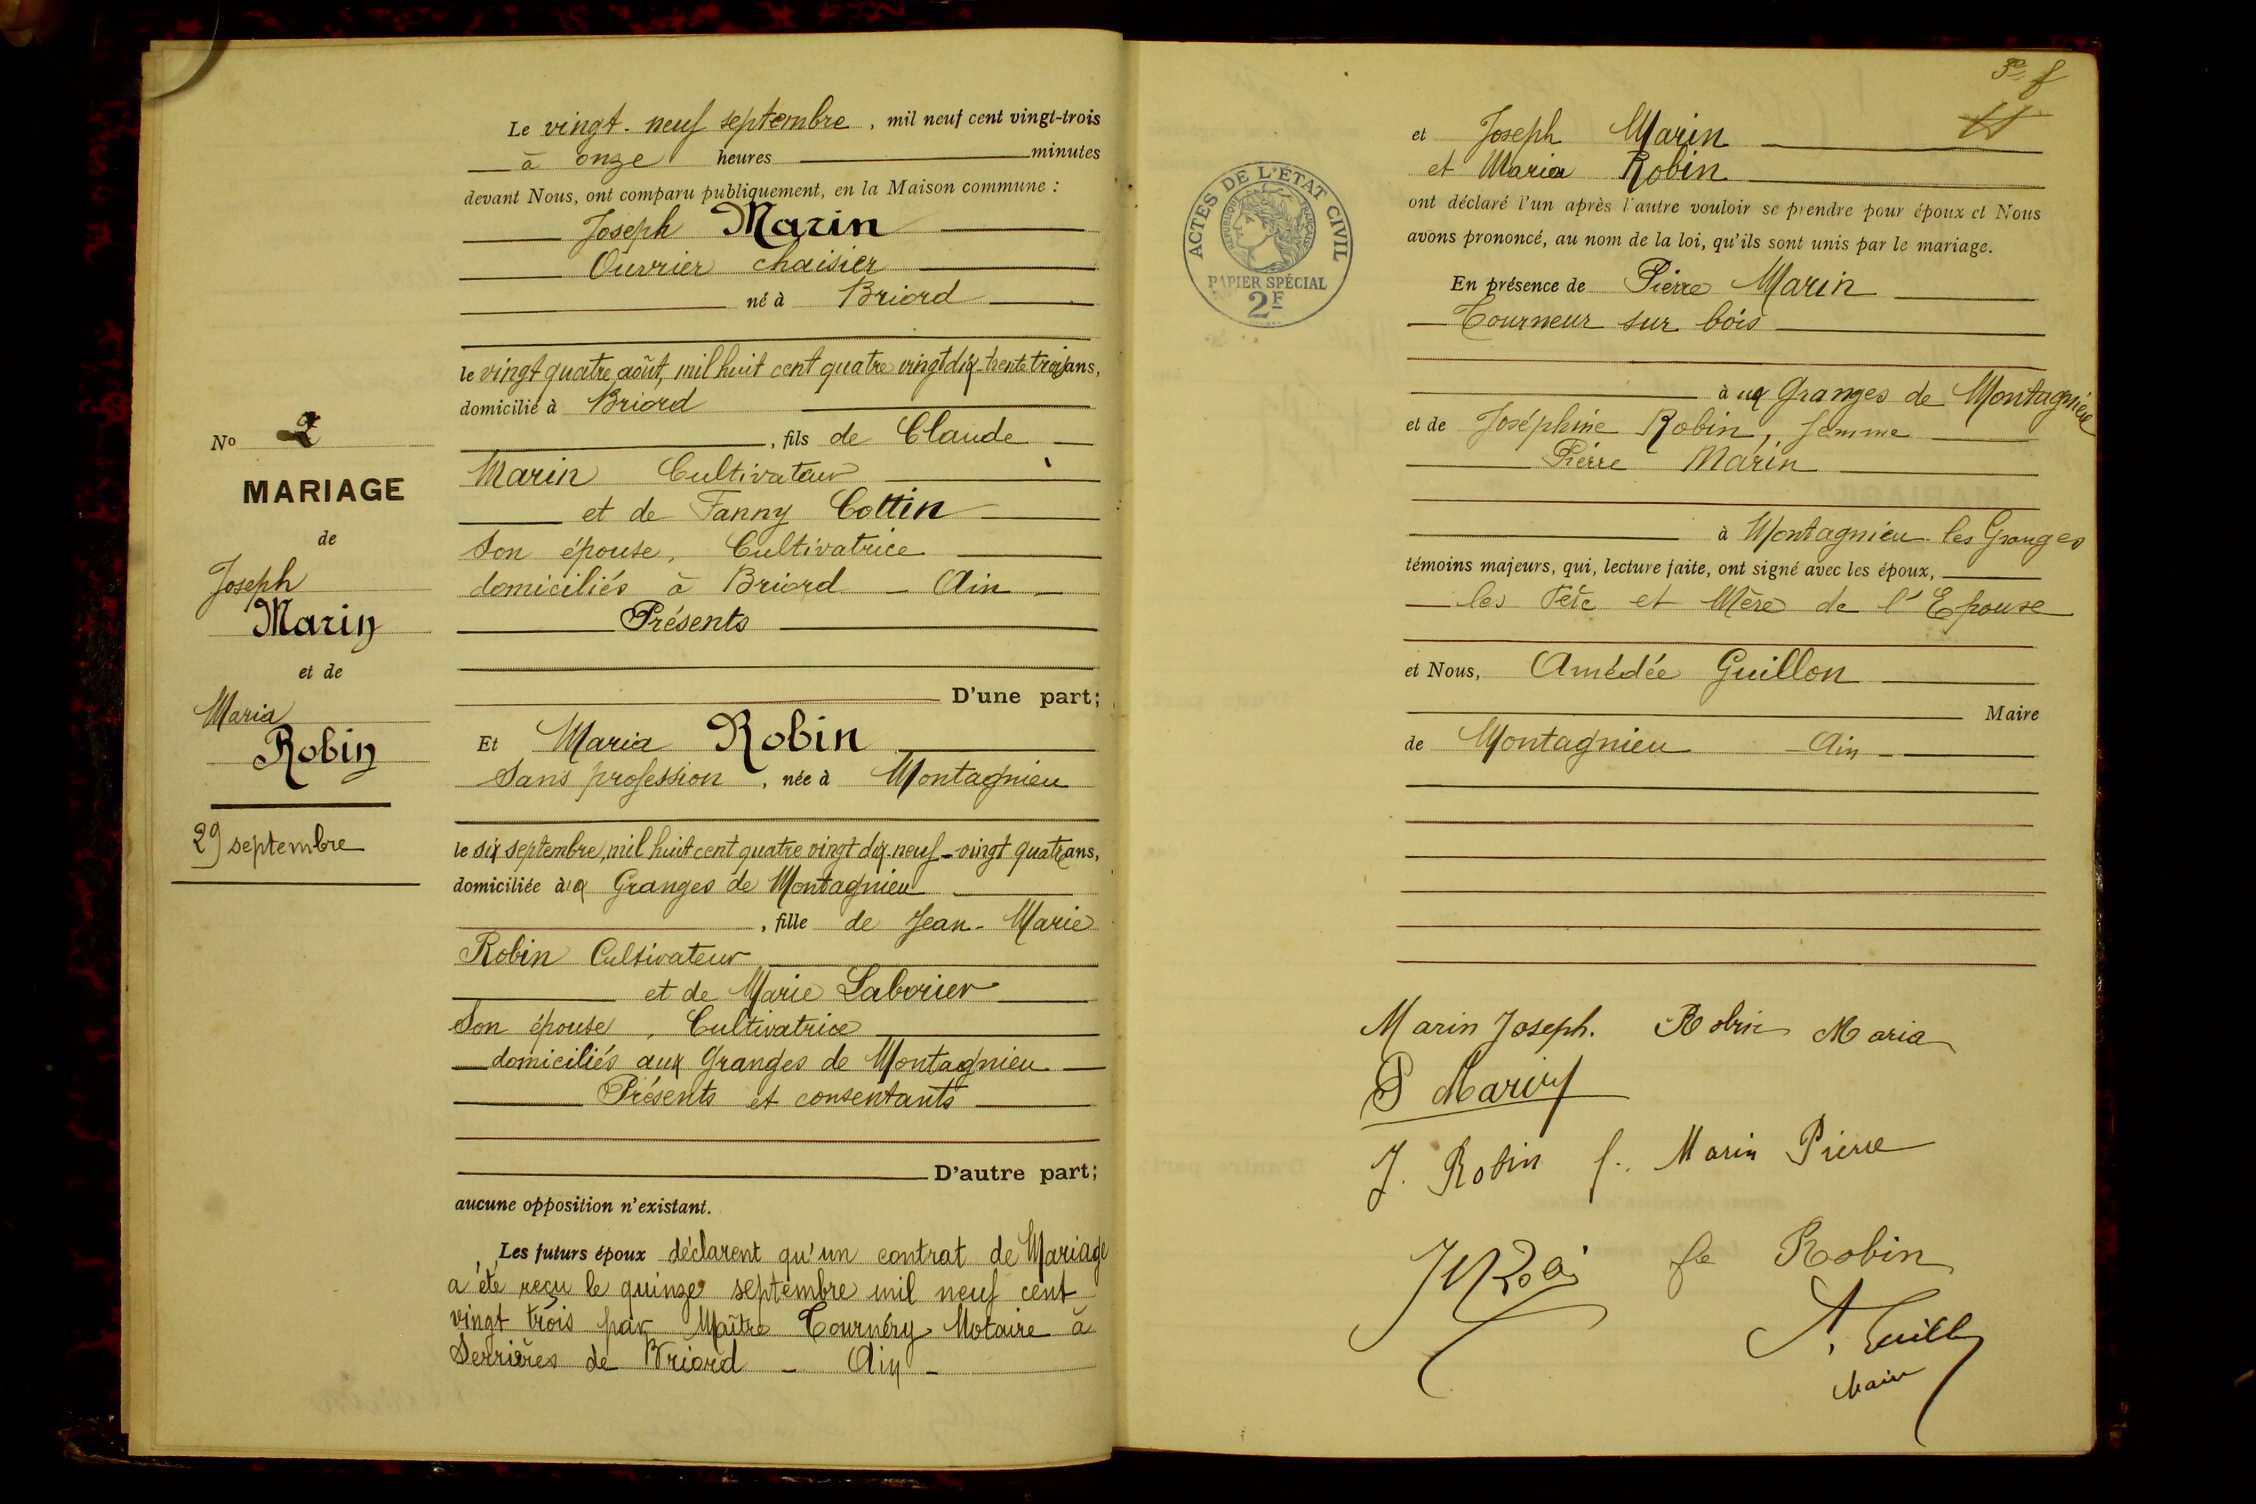 Le vingt-neuf septembre, mil neuf cent vingt-trois
à onze heures minutes
devant Nous, ont comparu publiquement, en la Maison commune :
Joseph Marin
Ouvrier chaisier
né à Briord
le vingt quatre août, mil huit cent quatre vingt dix - trente trois ans,
domicilié à Briord
, fils de Claude
Marin Cultivateur
et de Fanny Cottin
Son épouse, Cultivatrice
domiciliés à Briord - Ain -
Présents
D'une part;
No 2
MARIAGE
de
Joseph
Marin
et de
Maria
Robin
29 septembre
Et Maria Robin
Sans profession, née à Montagnieu
le six septembre, mil huit cent quatre vingt dix-neuf - vingt quatre ans,
domiciliée aux Granges de Montagnieu
, fille de Jean-Marie
Robin Cultivateur
et de Marie Laborier
Son épouse, Cultivatrice
domiciliés aux Granges de Montagnieu
Présents et consentants
D'autre part;
aucune opposition n'existant.
Les futurs époux déclarent qu'un contrat de Mariage
a été reçu le quinze septembre mil neuf cent
vingt trois par Maître Tournéry Notaire à
Serrières de Briord - Ain -
et Joseph Marin
et Maria Robin
ont déclaré l'un après l'autre vouloir se prendre pour époux et Nous
avons prononcé, au nom de la loi, qu'ils sont unis par le mariage.
ACTES DE L'ETAT CIVIL
REPUBLIQUE FRANÇAISE
PAPIER SPÉCIAL
2F
En présence de Pierre Marin
Tourneur sur bois
aux Granges de Montagnieu
et de Joséphine Robin, femme
Pierre Marin
à Montagnieu les Granges
témoins majeurs, qui, lecture faite, ont signé avec les époux,
les Père et Mère de l'Epouse
et Nous, Amédée Guillon
Maire
de Montagnieu - Ain -
Marin Joseph. Robin Maria
P Marin
J. Robin f. Marin Pierre
fe Robin
A. Guillon
Maire